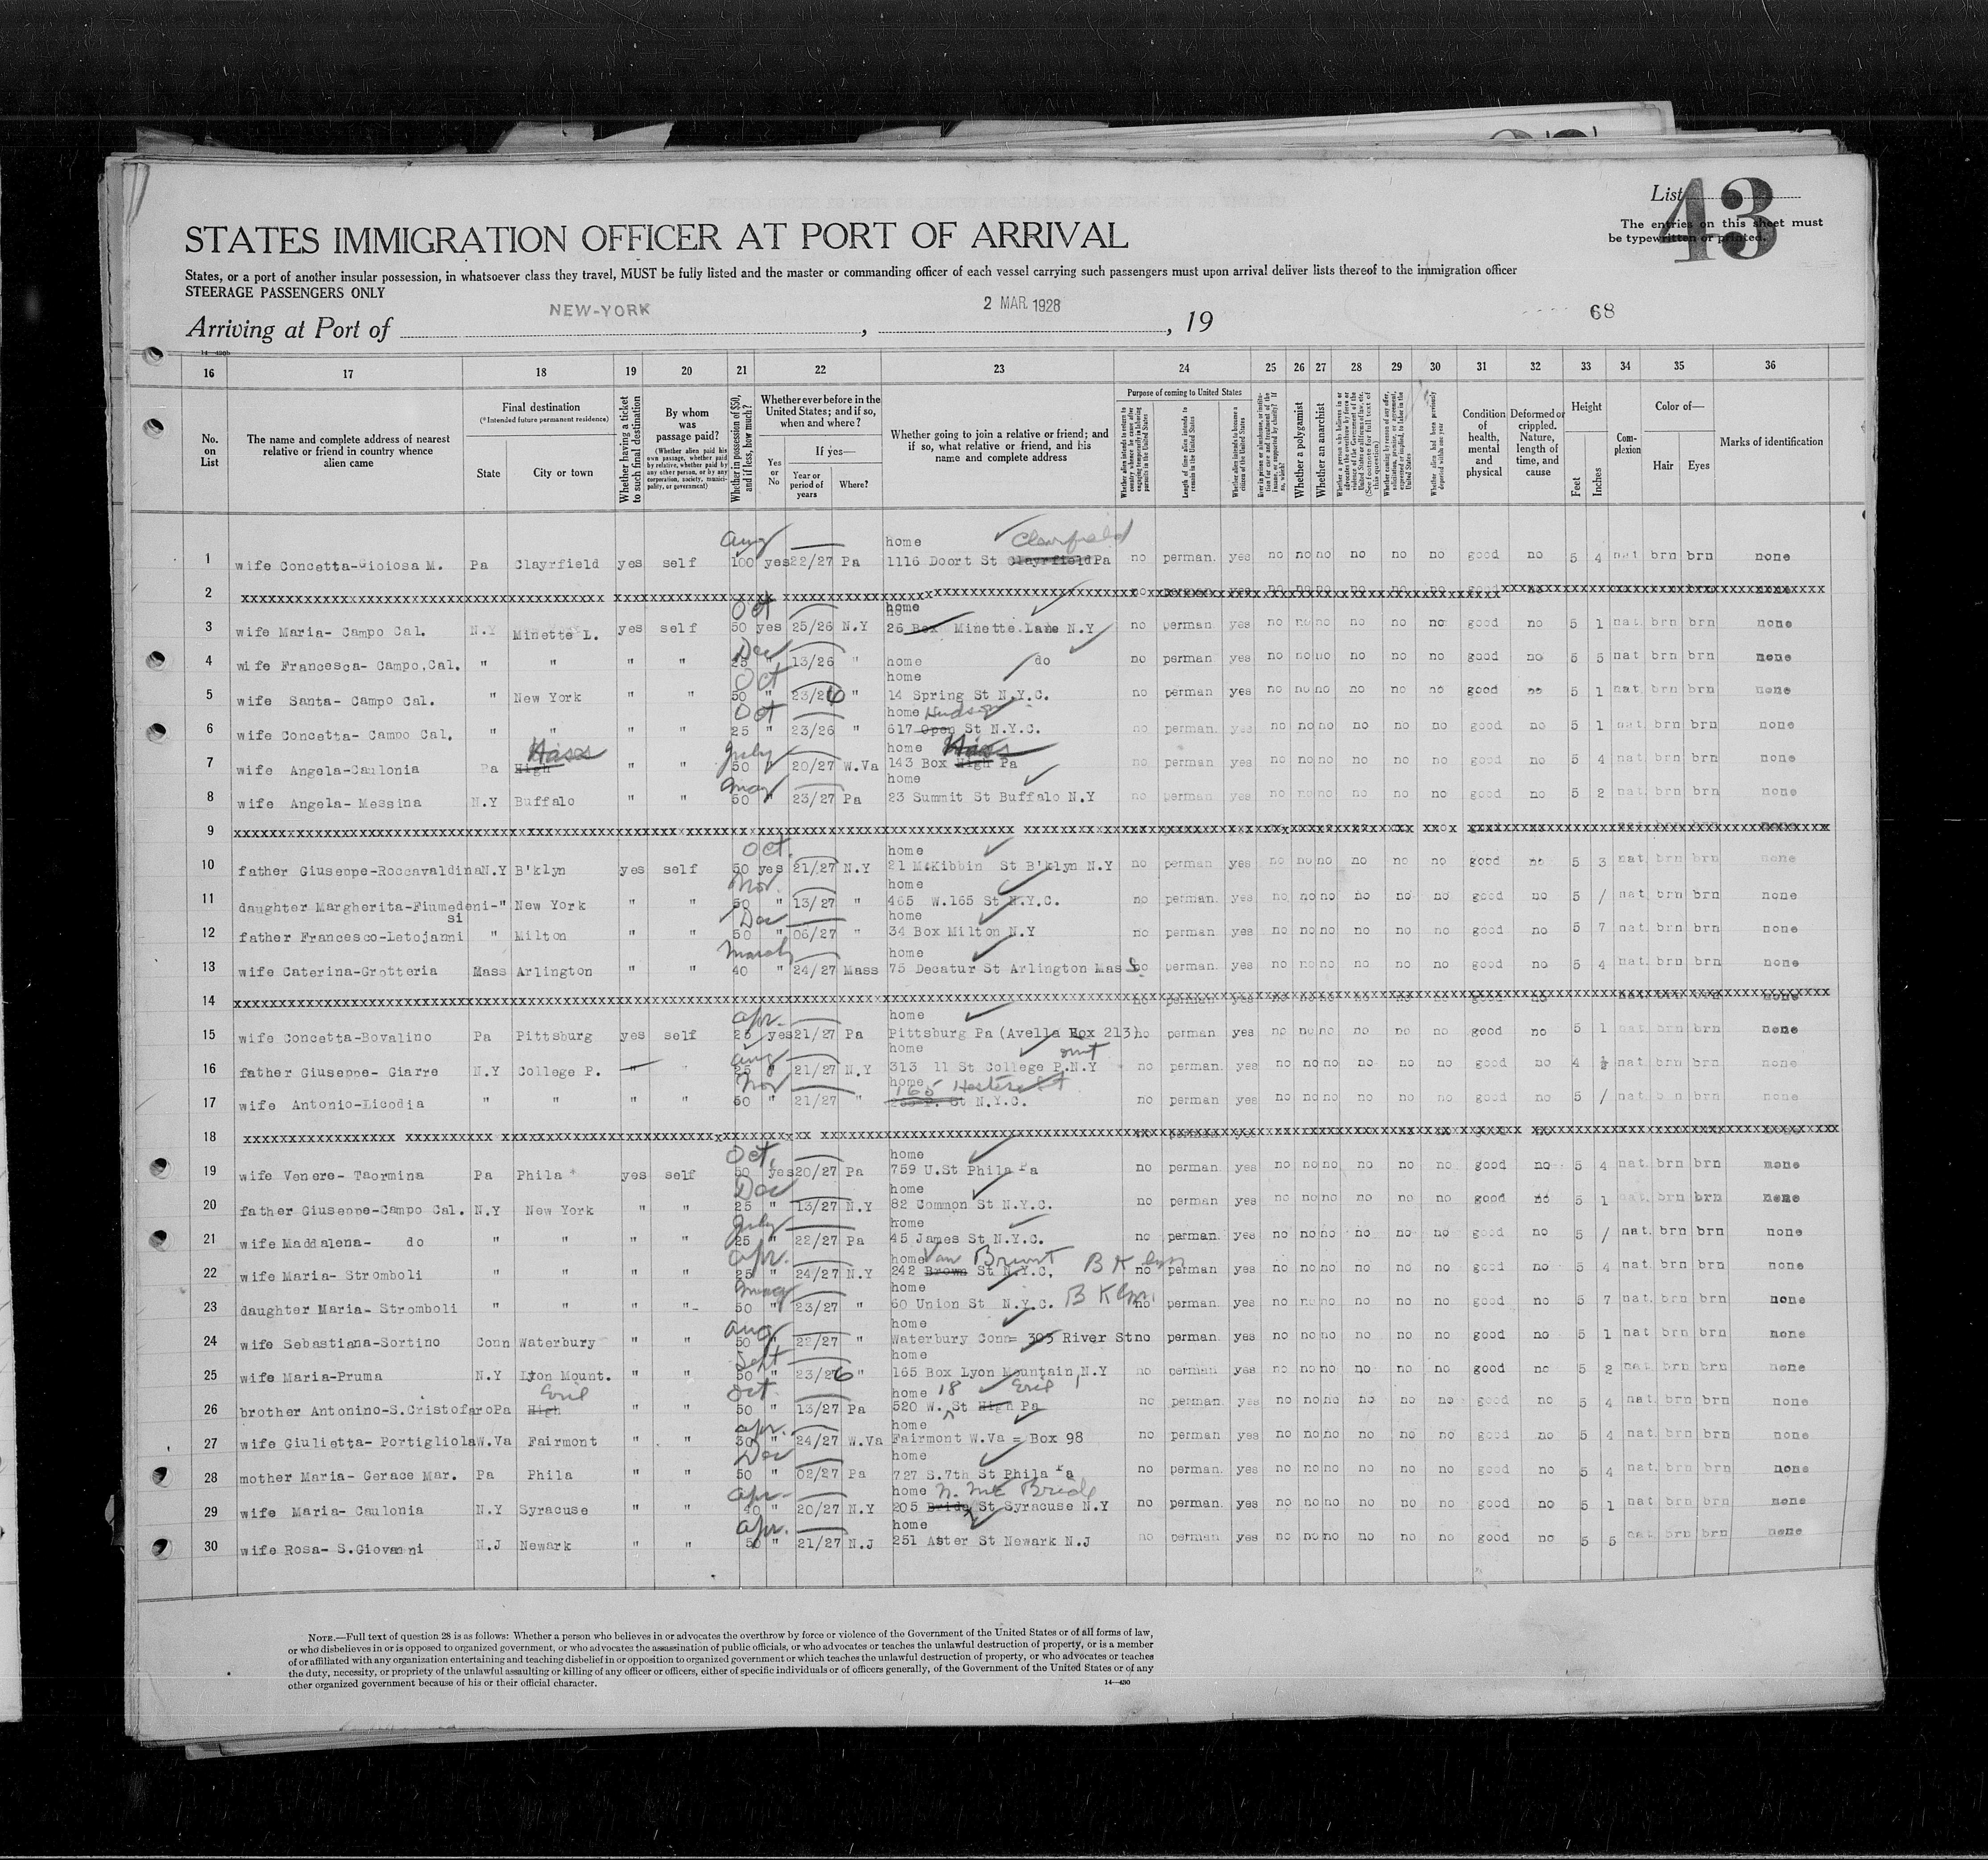 List 43
The entries on this sheet must
be typewritten or printed.
STATES IMMIGRATION OFFICER AT PORT OF ARRIVAL
States, or a port of another insular possession, in whatsoever class they travel, MUST be fully listed and the master or commanding officer of each vessel carrying such passengers must upon arrival deliver lists thereof to the immigration officer
STEERAGE PASSENGERS ONLY
Arriving at Port of NEW-YORK, 2 MAR. 1928, 19 68
16 17 18 19 20 21 22 23 24 25 26 27 28 29 30 31 32 33 34 35 36
No. on List
The name and complete address of nearest relative or friend in country whence alien came
Final destination
(*Intended future permanent residence)
State
City or town
Whether having a ticket to such final destination
By whom was passage paid?
(Whether alien paid his own passage, whether paid by relative, whether paid by any other person, or by any corporation, society, municipality, or government)
Whether in possession of $50, and if less, how much?
Whether ever before in the United States; and if so, when and where?
Yes or No
If yes—
Year or period of years
Where?
Whether going to join a relative or friend; and if so, what relative or friend, and his name and complete address
Purpose of coming to United States
Length of time alien intends to remain in the United States
Whether alien intends to become a citizen of the United States
Whether a polygamist
Whether an anarchist
Condition of health, mental and physical
Deformed or crippled. Nature, length of time, and cause
Height
Feet
Inches
Complexion
Color of—
Hair
Eyes
Marks of identification
1 wife Concetta-Gioiosa M. Pa Clayrfield yes self Aug 100 yes 22/27 Pa home 1116 Doort St Clayrfield Clearfield Pa no perman. yes no no no no no no good no 5 4 nat brn brn none
2
3 wife Maria- Campo Cal. N.Y Minette L. yes self Oct 50 yes 25/26 N.Y home 26 Box Minette Lane N.Y no perman yes no no no no no no good no 5 1 nat. brn brn none
4 wife Francesca- Campo,Cal. " " " " Dec 25 " 13/26 " home do no perman yes no no no no no no good no 5 5 nat brn brn none
5 wife Santa- Campo Cal. " New York " " Oct 50 " 23/26 " home 14 Spring St N.Y.C. no perman yes no no no no no no good no 5 1 nat. brn brn none
6 wife Concetta- Campo Cal. " " " " Oct 25 " 23/26 " home 617 Open Hudson St N.Y.C. no perman yes no no no no no no good no 5 1 nat. brn brn none
7 wife Angela-Caulonia Pa High " " July 50 " 20/27 W.Va home 143 Box High Pa no perman yes no no no no no no good no 5 4 nat. brn brn none
8 wife Angela- Messina N.Y Buffalo " " May 50 " 23/27 Pa home 23 Summit St Buffalo N.Y no perman yes no no no no no no good no 5 2 nat brn brn none
9
10 father Giuseppe-Roccavaldina N.Y B'klyn yes self Oct. 50 yes 21/27 N.Y home 21 McKibbin St B'klyn N.Y no perman yes no no no no no no good no 5 3 nat brn brn none
11 daughter Margherita-Fiumedeni-si " New York " " Nov. 50 " 13/27 " home 465 W.165 St N.Y.C. no perman. yes no no no no no no good no 5 / nat. brn brn none
12 father Francesco-Letojanni " Milton " " Dec 50 " 06/27 " home 34 Box Milton N.Y no perman yes no no no no no no good no 5 7 nat. brn brn none
13 wife Caterina-Grotteria Mass Arlington " " March 40 " 24/27 Mass home 75 Decatur St Arlington Mass no perman. yes no no no no no no good no 5 4 nat. brn brn none
14
15 wife Concetta-Bovalino Pa Pittsburg yes self Apr. 25 yes 21/27 Pa home Pittsburg Pa (Avella Box 213) no perman yes no no no no no no good no 5 1 nat brn brn none
16 father Giuseppe- Giarre N.Y College P. " " Aug 25 " 21/27 N.Y home 313 11 St College P.N.Y no perman. yes no no no no no no good no 4 nat brn brn none
17 wife Antonio-Licodia " " " " Nov 50 " 21/27 " home 165 Hester St N.Y.C. no perman yes no no no no no no good no 5 / nat brn brn none
18
19 wife Venere- Taormina Pa Phila yes self Oct. 50 yes 20/27 Pa home 759 U.St Phila Pa no perman. yes no no no no no no good no 5 4 nat. brn brn none
20 father Giuseppe-Campo Cal. N.Y New York " " Dec 25 " 13/27 N.Y home 82 Common St N.Y.C. no perman yes no no no no no no good no 5 1 nat. brn brn none
21 wife Maddalena- do " " " " July 25 " 22/27 Pa home 45 James St N.Y.C. no perman. yes no no no no no no good no 5 / nat. brn brn none
22 wife Maria- Stromboli " " " " Apr. 25 " 24/27 N.Y home 242 Brown Van Brunt St N.Y.C. B Klyn no perman yes no no no no no no good no 5 4 nat. brn brn none
23 daughter Maria- Stromboli " " " " May 50 " 23/27 " home 60 Union St N.Y.C. B Klyn no perman. yes no no no no no no good no 5 7 nat. brn brn none
24 wife Sebastiana-Sortino Conn Waterbury " " Aug 50 " 22/27 " home Waterbury Conn= 303 River St no perman. yes no no no no no no good no 5 1 nat brn brn none
25 wife Maria-Pruma N.Y Lyon Mount. " " Sept 50 " 23/26 " home 165 Box Lyon Mountain,N.Y no perman yes no no no no no no good no 5 2 nat. brn brn none
26 brother Antonino-S.Cristofaro Pa High Erie " " Oct. 50 " 13/27 Pa home 520 W. 18 St High Erie Pa no perman yes no no no no no no good no 5 4 nat. brn brn none
27 wife Giulietta- Portigliola W.Va Fairmont " " Apr. 30 " 24/27 W.Va home Fairmont W.Va = Box 98 no perman yes no no no no no no good no 5 4 nat. brn brn none
28 mother Maria- Gerace Mar. Pa Phila " " Dec 50 " 02/27 Pa home 727 S.7th St Phila Pa no perman. yes no no no no no no good no 5 4 nat. brn brn none
29 wife Maria- Caulonia N.Y Syracuse " " Apr- 40 " 20/27 N.Y home 205 Bride N. Mc Bride St Syracuse N.Y no perman. yes no no no no no no good no 5 1 nat brn brn none
30 wife Rosa- S.Giovanni N.J Newark " " Apr. 50 " 21/27 N.J home 251 Aster St Newark N.J no perman. yes no no no no no no good no 5 5 nat brn brn none
NOTE.—Full text of question 28 is as follows: Whether a person who believes in or advocates the overthrow by force or violence of the Government of the United States or of all forms of law,
or who disbelieves in or is opposed to organized government, or who advocates the assassination of public officials, or who advocates or teaches the unlawful destruction of property, or is a member
of or affiliated with any organization entertaining and teaching disbelief in or opposition to organized government or which teaches the unlawful destruction of property, or who advocates or teaches
the duty, necessity, or propriety of the unlawful assaulting or killing of any officer or officers, either of specific individuals or of officers generally, of the Government of the United States or of any
other organized government because of his or their official character.
14—430